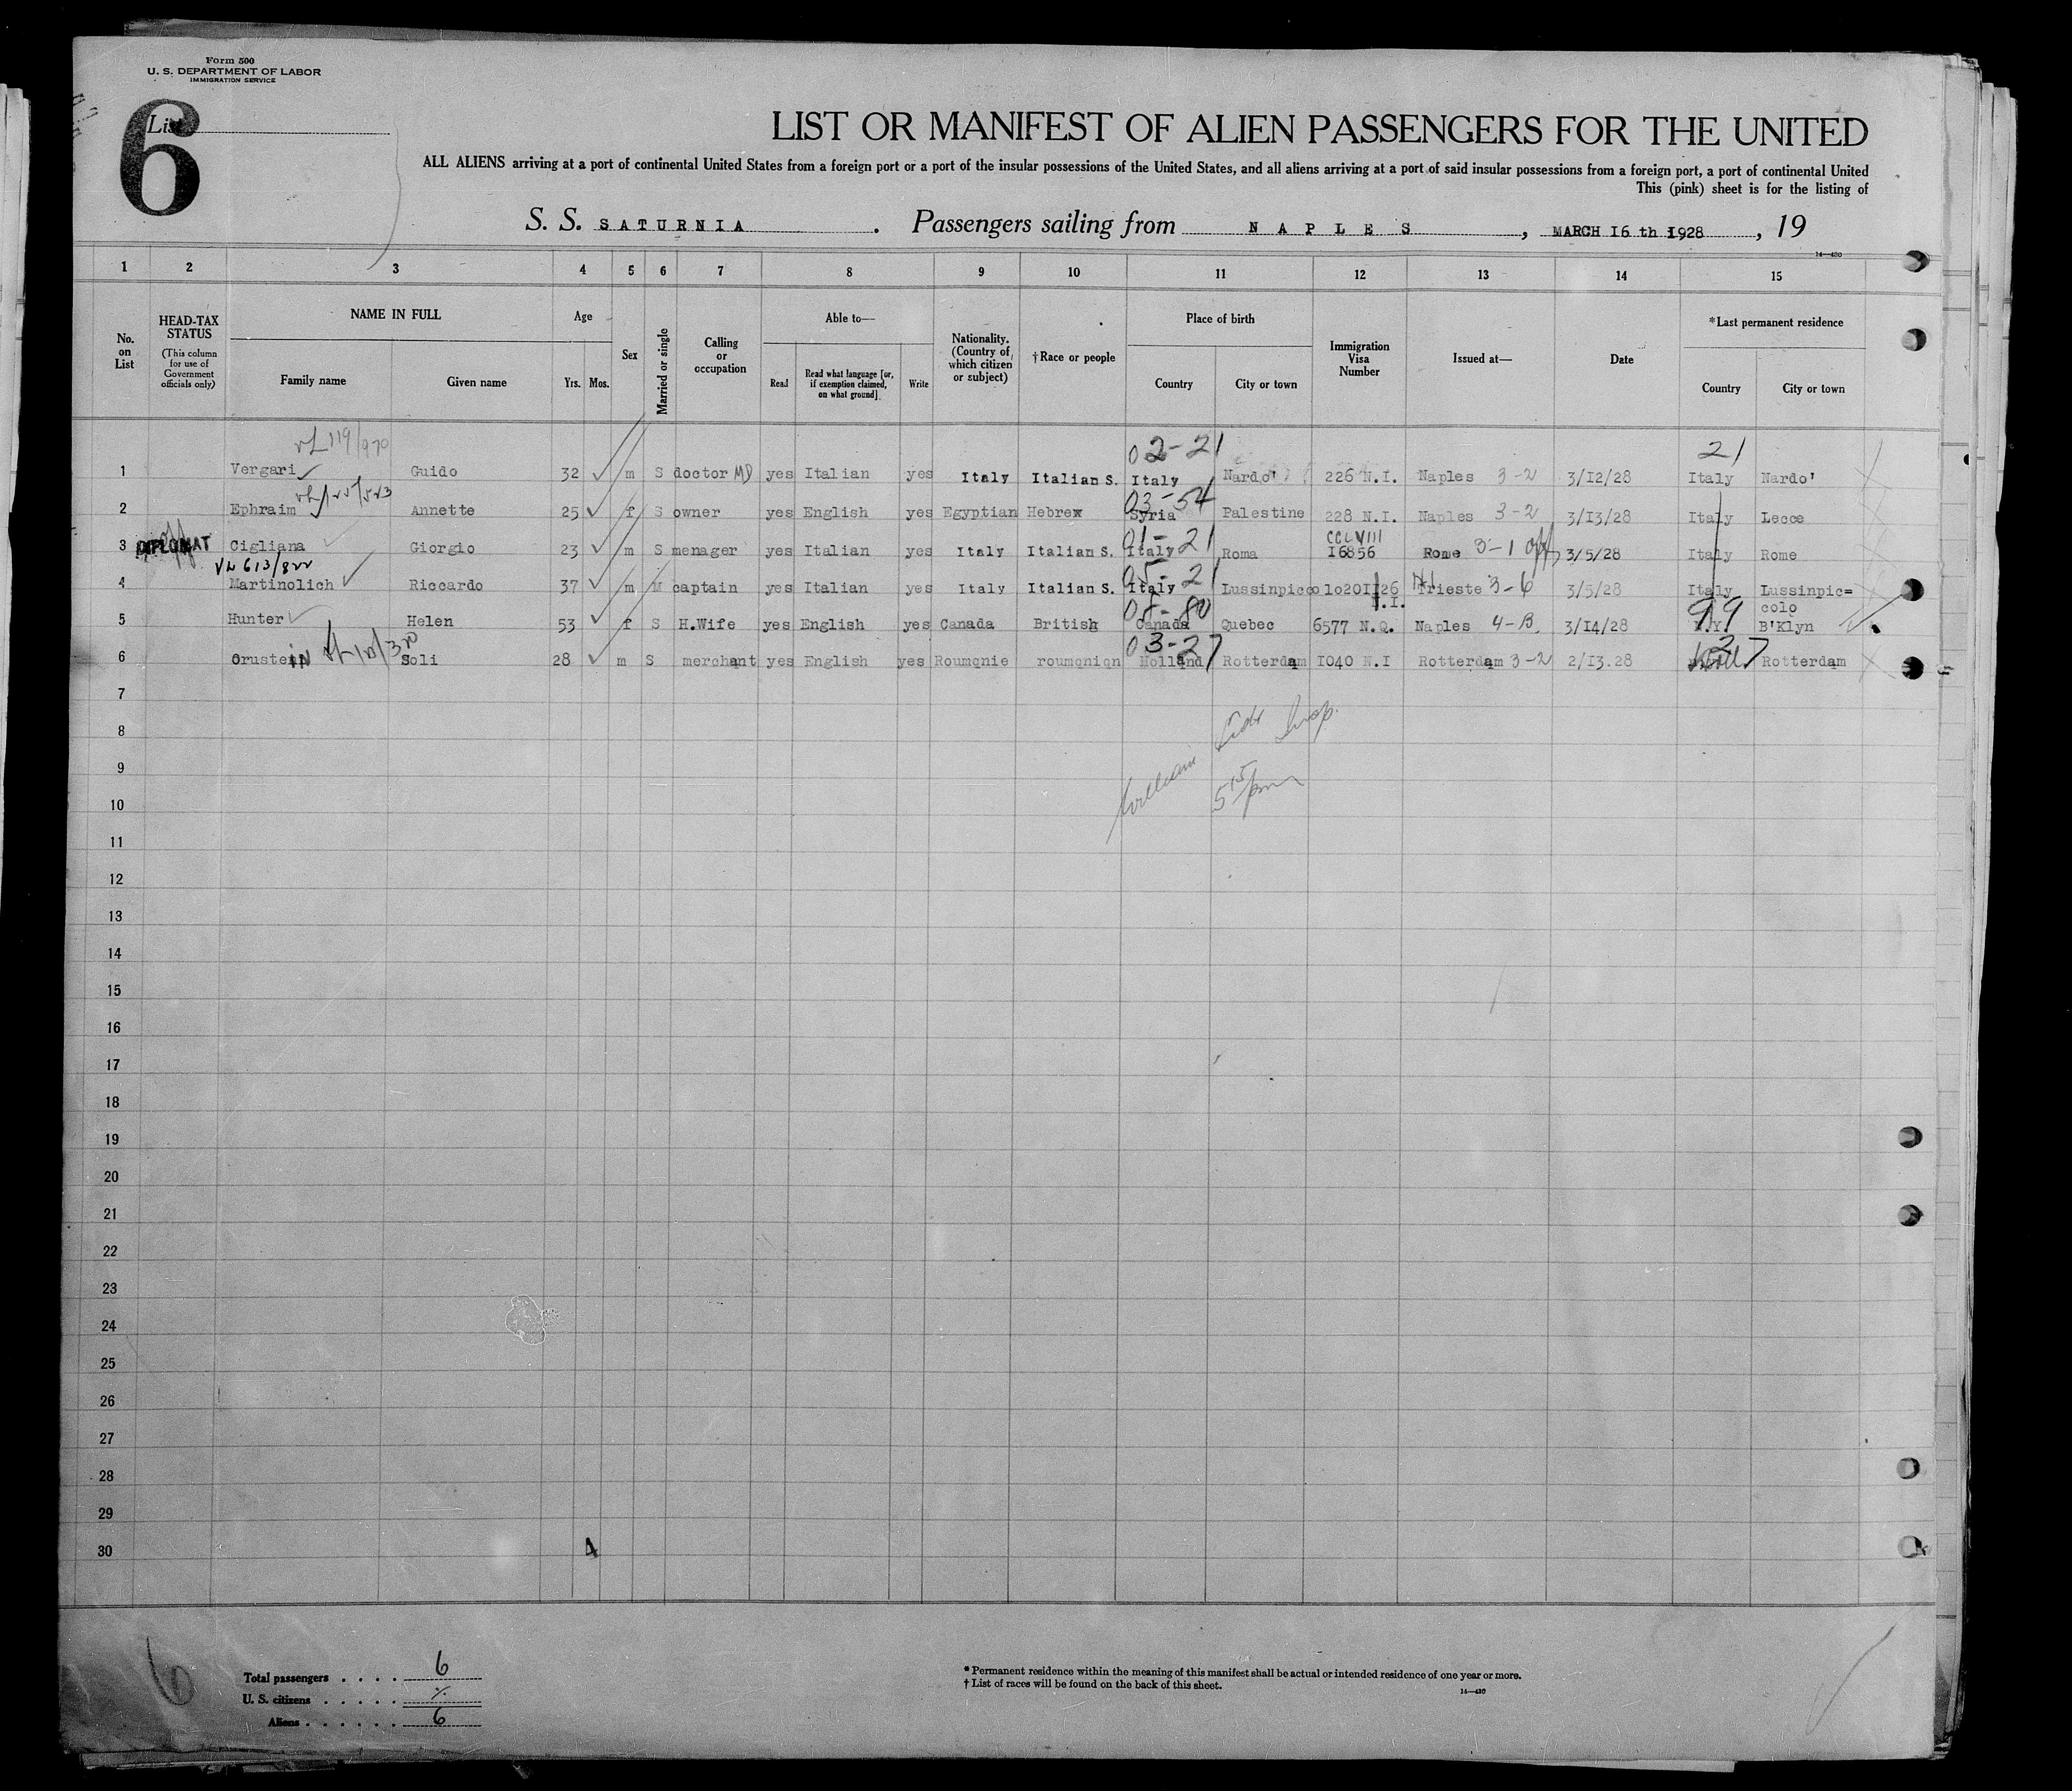 Form 500
U. S. DEPARTMENT OF LABOR
IMMIGRATION SERVICE
6
List
LIST OR MANIFEST OF ALIEN PASSENGERS FOR THE UNITED
ALL ALIENS arriving at a port of continental United States from a foreign port or a port of the insular possessions of the United States, and all aliens arriving at a port of said insular possessions from a foreign port, a port of continental United
This (pink) sheet is for the listing of
S. S. SATURNIA . Passengers sailing from NAPLES , MARCH I6 th I928 , 19
14—430
1 2 3 4 5 6 7 8 9 10 11 12 13 14 15
No. on List
HEAD-TAX STATUS
(This column for use of Government officials only)
NAME IN FULL
Family name Given name
Age
Yrs. Mos.
Sex
Married or single
Calling or occupation
Able to—
Read
Read what language [or, if exemption claimed, on what ground]
Write
Nationality. (Country of which citizen or subject)
†Race or people
Place of birth
Country City or town
Immigration Visa Number
Issued at—
Date
*Last permanent residence
Country City or town
119/970 02-21 21
1 Vergari Guido 32 m S doctor MD yes Italian yes Italy Italian S. Italy Nardo' 226 N.I. Naples 3-2 3/I2/28 Italy Nardo'
03-54
2 Ephraim Annette 25 f S owner yes English yes Egyptian Hebrew Syria Palestine 228 N.I. Naples 3-2 3/I3/28 Italy Lecce
01-21 CCLVIII
3 DIPLOMAT Cigliana Giorgio 23 m S menager yes Italian yes Italy Italian S. Italy Roma I6856 Rome 3-1 3/5/28 Italy Rome
613/822 05-21
4 Martinolich Riccardo 37 m M captain yes Italian yes Italy Italian S. Italy Lussinpiccolo Trieste 3-6 3/5/28 Italy Lussinpic=
colo
08-80 99
5 Hunter Helen 53 f S H.Wife yes English yes Canada British Canada Quebec 6577 N.Q. Naples 4-B 3/I4/28 N.Y. B'Klyn
03-27 27
6 Orustein Soli 28 m S merchant yes English yes Roumqnie roumqniqn Holland Rotterdam I040 N.I Rotterdam 3-2 2/I3.28 Rotterdam
7
8
9
10
5 15/pm
11
12
13
14
15
16
17
18
19
20
21
22
23
24
25
26
27
28
29
30
6
Total passengers . . . . 6
U. S. citizens . . . . . ⁒
Aliens . . . . . . 6
* Permanent residence within the meaning of this manifest shall be actual or intended residence of one year or more.
† List of races will be found on the back of this sheet.
14—430